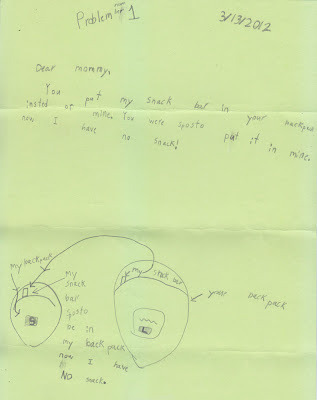 Problem 1
3/13/2012
Dear mommy,
You put my snack bar in your backpack
insted of mine. You were sposto put it in mine.
now I have no snack!
my backpack
my
snack
bar
sposto
be in
my backpack
now I have
NO snack.
my snack bar
your back pack